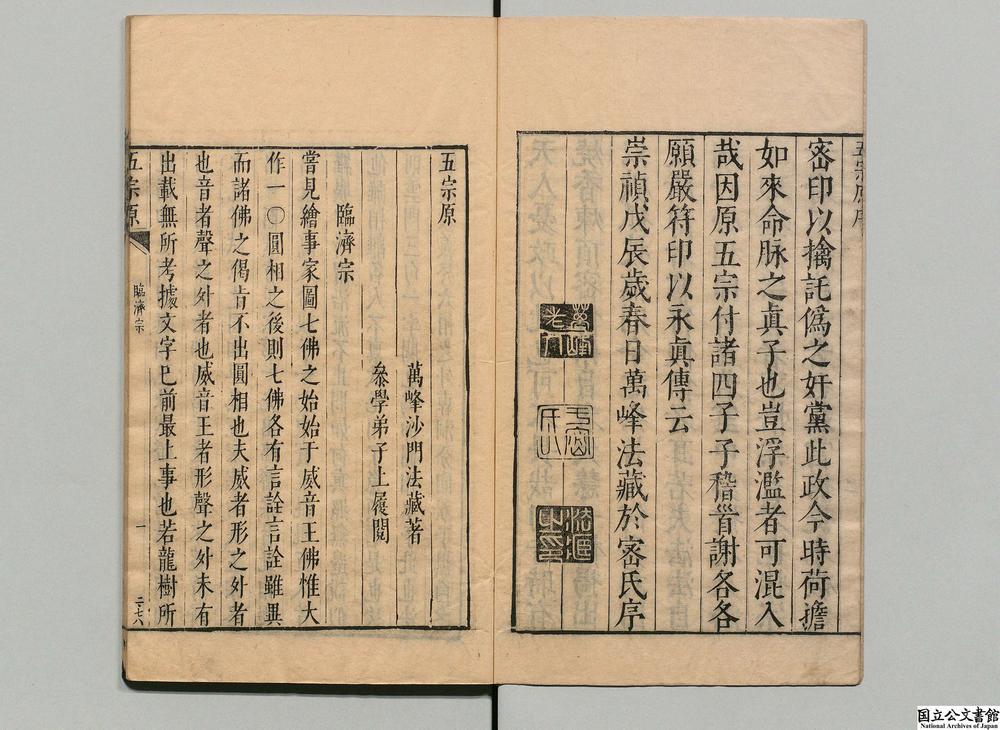 五宗原序
密印以擒託偽之奸黨此政今時荷擔
如來命脉之眞子也豈浮濫者可混入
哉因原五宗付諸四子子稽首謝各各
願嚴符印以永眞傳云
崇禎戊辰歲春日萬峰法藏於密氏序
萬峰
老人
於密
氏
法藏
之印
五宗原
萬峰沙門法藏著
叅學弟子上履閱
臨濟宗
嘗見繪事家圖七佛之始始于威音王佛惟大
作一〇圓相之後則七佛各有言詮言詮雖異
而諸佛之偈肯不出圓相也夫威者形之外者
也音者聲之外者也威音王者形聲之外未有
出載無所考據文字已前最上事也若龍樹所
五宗原
臨濟宗
一
二七六
国立公文書館
National Archives of Japan